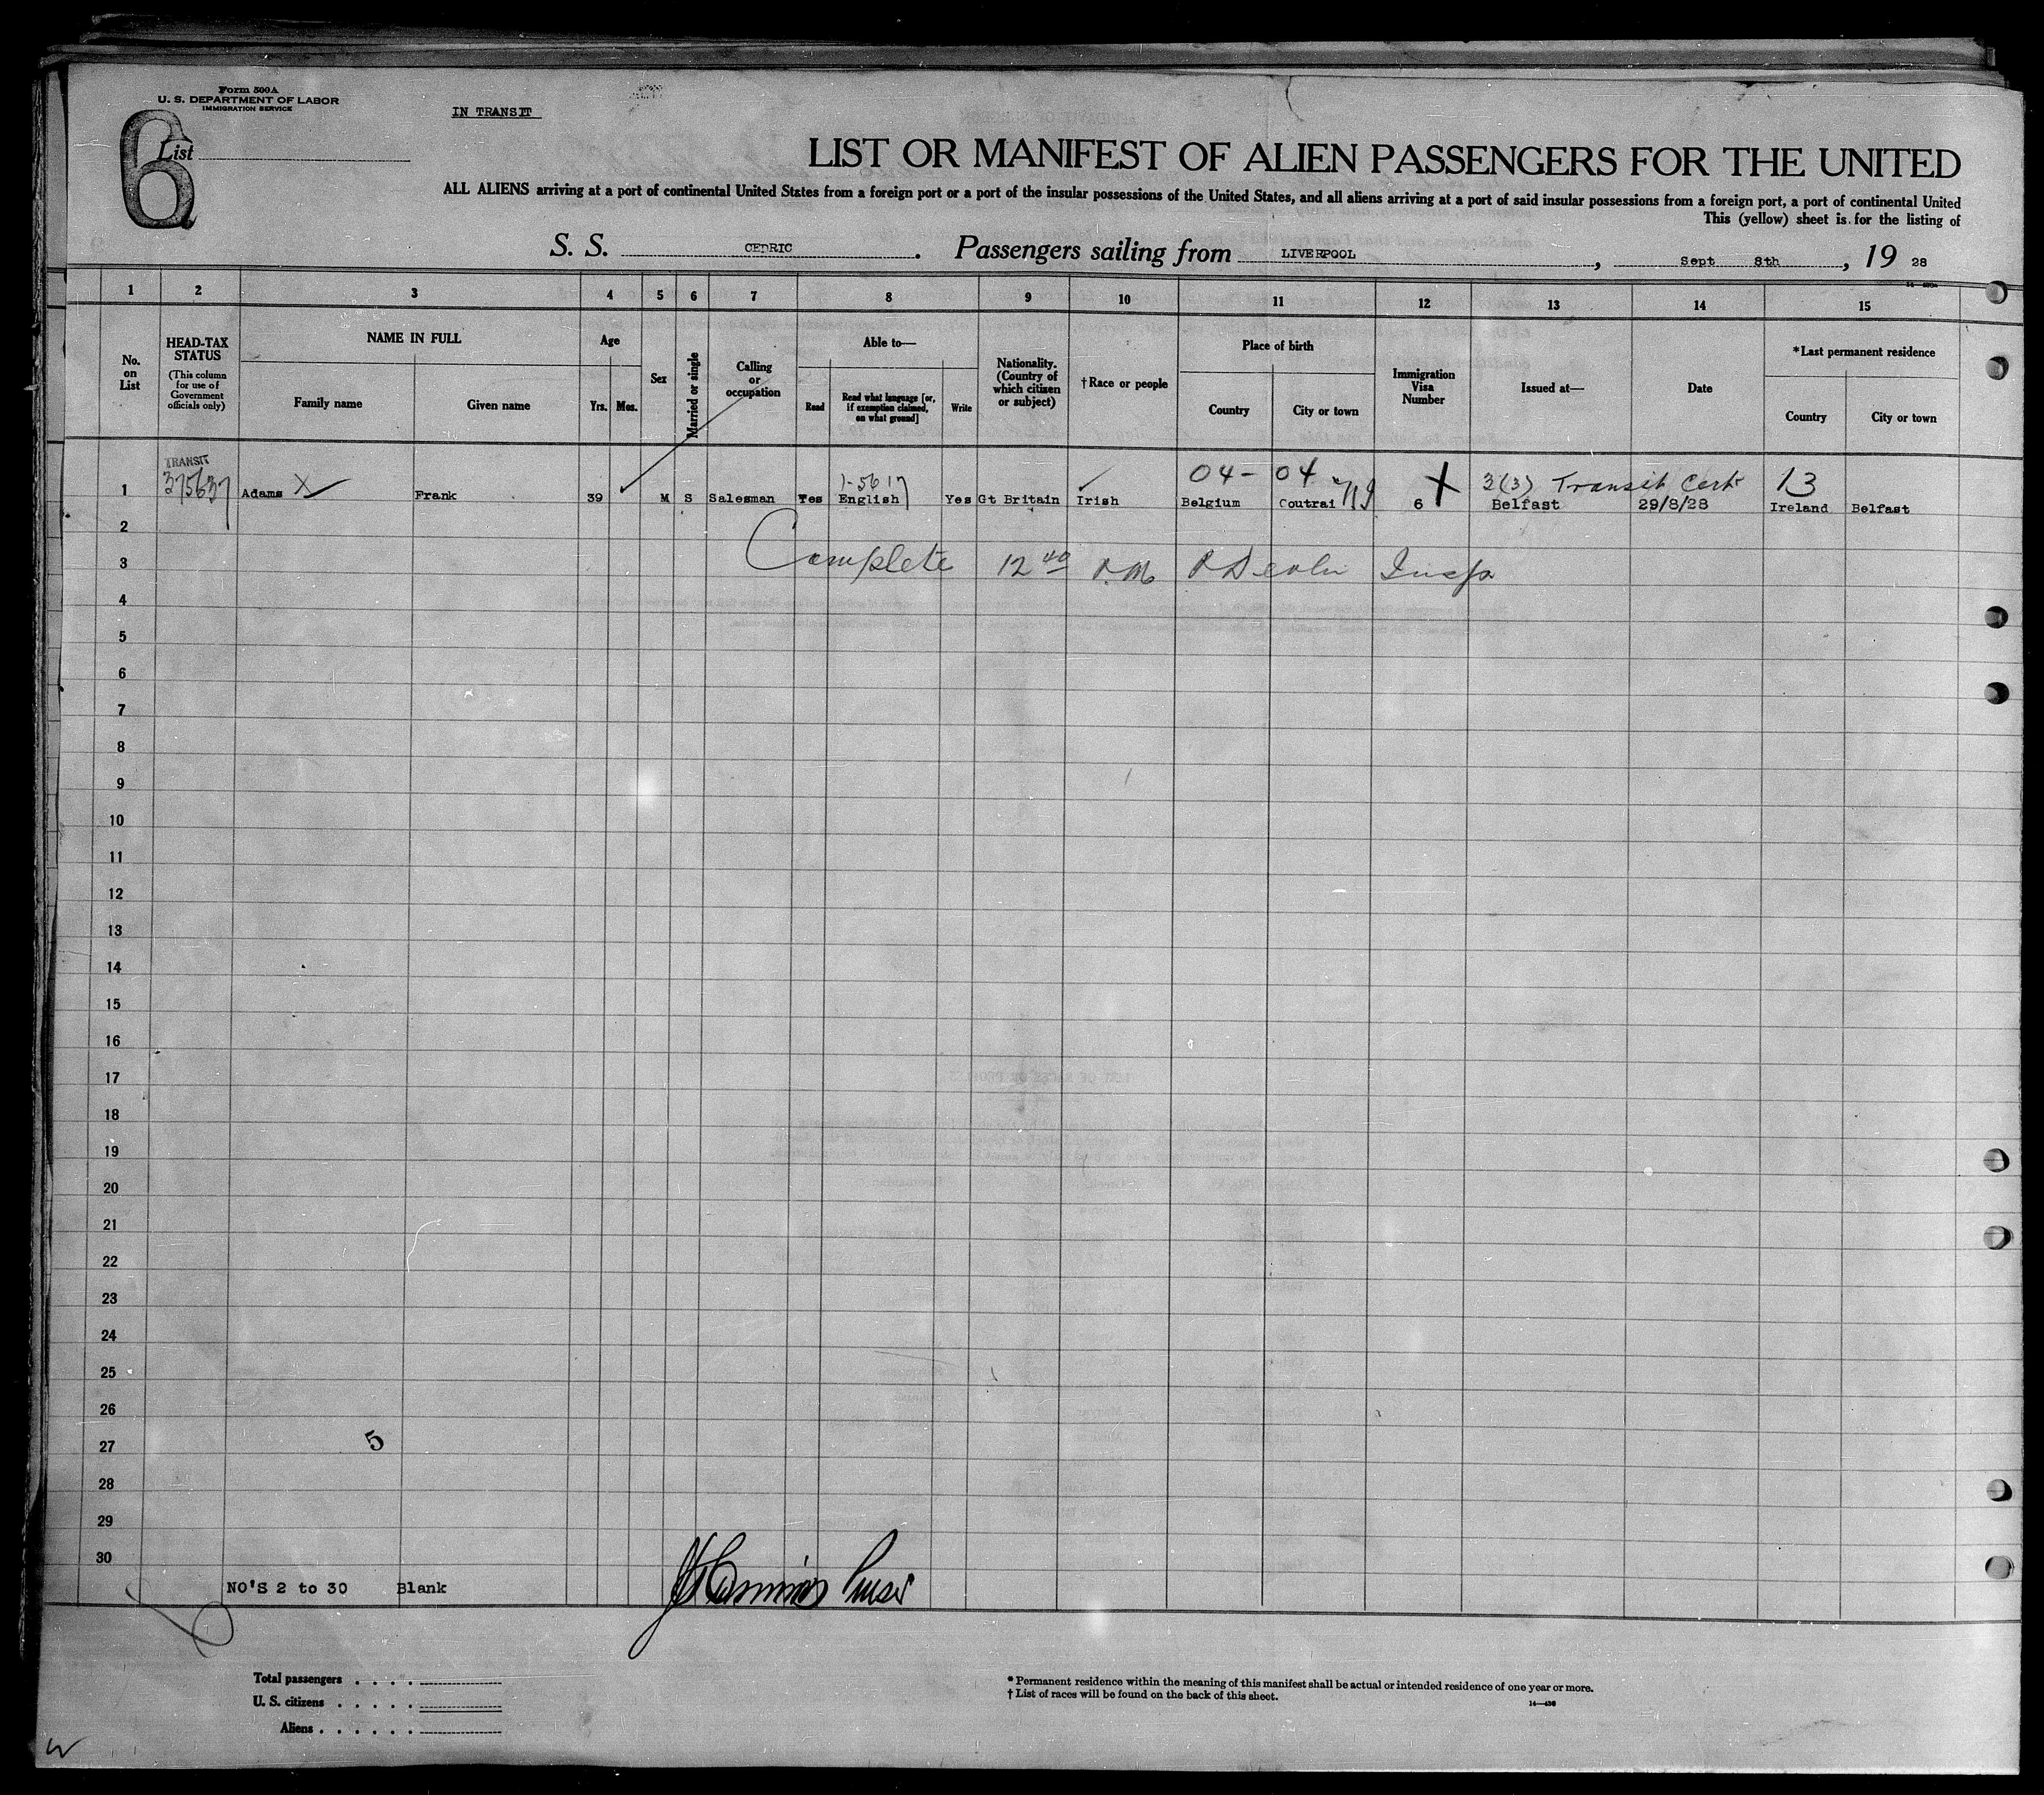 Form 500A
U. S. DEPARTMENT OF LABOR
IMMIGRATION SERVICE
IN TRANSIT
6
List
LIST OR MANIFEST OF ALIEN PASSENGERS FOR THE UNITED
ALL ALIENS arriving at a port of continental United States from a foreign port or a port of the insular possessions of the United States, and all aliens arriving at a port of said insular possessions from a foreign port, a port of continental United
This (yellow) sheet is for the listing of
S. S. CEDRIC. Passengers sailing from LIVERPOOL, Sept 8th, 19 28
1 2 3 4 5 6 7 8 9 10 11 12 13 14 15
No. on List
HEAD-TAX STATUS
(This column for use of Government officials only)
NAME IN FULL
Family name Given name
Age
Yrs. Mos.
Sex
Married or single
Calling or occupation
Able to—
Read
Read what language [or, if exemption claimed, on what ground]
Write
Nationality. (Country of which citizen or subject)
†Race or people
Place of birth
Country City or town
Immigration Visa Number
Issued at—
Date
*Last permanent residence
Country City or town
TRANSIT
375637
04- 04
3(3) Transit Cert
13
1 Adams X Frank 39 M S Salesman Yes English Yes Gt Britain Irish Belgium Coutrai 6 Belfast 29/8/28 Ireland Belfast
2
Complete 12 40 P.M. Insp
3
4
5
6
7
8
9
10
11
12
13
14
15
16
17
18
19
20
21
22
23
24
25
26
5
27
28
29
30
NO'S 2 to 30 Blank
Purser
Total passengers . . . .
U. S. citizens . . . . .
Aliens . . . . . .
* Permanent residence within the meaning of this manifest shall be actual or intended residence of one year or more.
† List of races will be found on the back of this sheet.
14—436